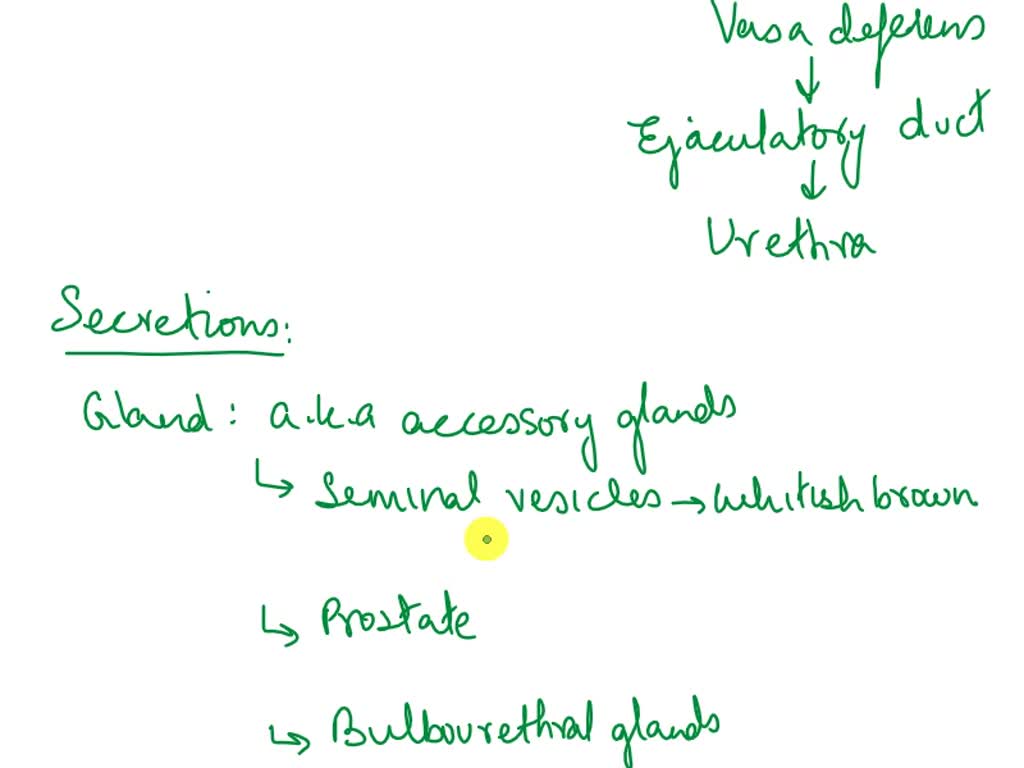 Vasa deferens
↓
Ejaculatory duct
↓
Urethra
Secretions:
Gland: a.k.a accessory glands
↳ Seminal vesicles → whitish brown
↳ Prostate
↳ Bulbourethral glands